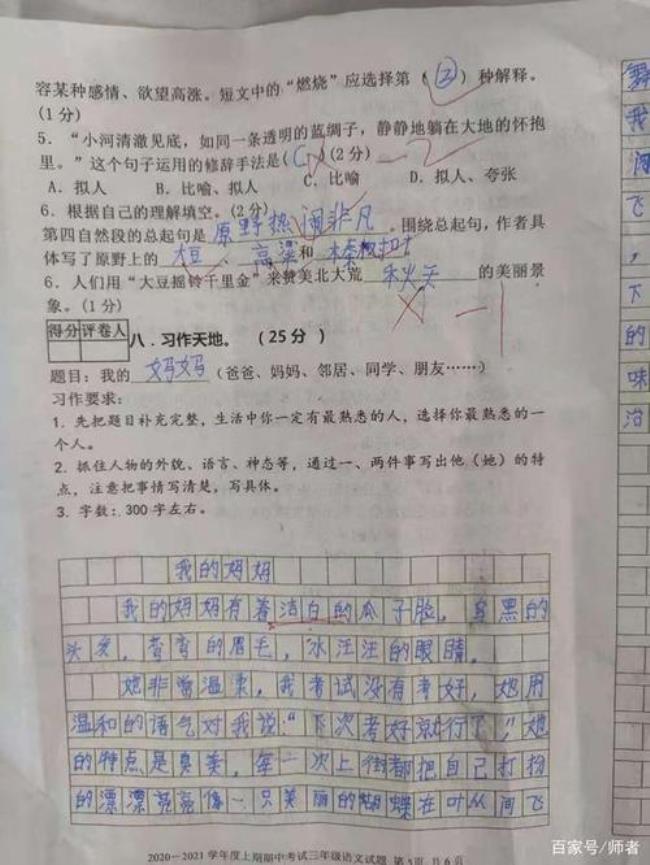 容某种感情、欲望高涨。短文中的“燃烧”应选择第（②）种解释。
(1分)
5. “小河清澈见底，如同一条透明的蓝绸子，静静地躺在大地的怀抱
里。”这个句子运用的修辞手法是(C)(2分) -2
A. 拟人 B. 比喻、拟人 C. 比喻 D. 拟人、夸张
6. 根据自己的理解填空。(2分)
第四自然段的总起句是 原野热闹非凡 。围绕总起句，作者具
体写了原野上的 大豆 、 高粱 和
6. 人们用“大豆摇铃千里金”来赞美北大荒 秋天 的美丽景
象。(1分) -1
得分 评卷人
八．习作天地。（25分）
题目：我的 妈妈 （爸爸、妈妈、邻居、同学、朋友……）
习作要求：
1. 先把题目补充完整，生活中你一定有最熟悉的人，选择你最熟悉的一
个人。
2. 抓住人物的外貌、语言、神态等，通过一、两件事写出他（她）的特
点，注意把事情写清楚，写具体。
3. 字数：300字左右。
我的妈妈
我的妈妈有着洁白的瓜子脸，乌黑的
头发，弯弯的眉毛，水汪汪的眼睛。
她非常温柔，我考试没有考好，她用
温和的语气对我说：“下次考好就行了，”她
的特点是臭美，每一次上街都把自己打扮
的漂漂亮亮像一只美丽的蝴蝶在叶丛间飞
2020－2021学年度上期期中考试三年级语文试题 第5页 共6页
舞
我
闻
飞
，
下
的
味
治
百家号/师者